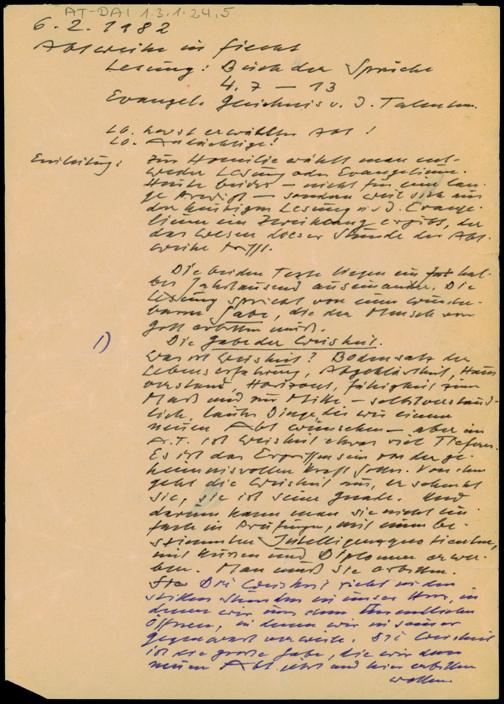 AT-DAI 1.3.1.24.5
6.2.1982
Abtweihe in Fiecht
Lesung: Buch der Sprüche
4.7 – 13
Evangel. Gleichnis v. d. Talenten.
Lb. neuerwählter Abt!
Lb. Andächtige!
Einleitung: Zur Homilie wählt man ent-
weder Lesung oder Evangelium.
Heute beides – nicht für eine lan-
ge Predigt – sondern weil sich aus
der heutigen Lesung u. d. Evange-
lium ein Zweiklang ergibt, der
das Wesen dieser Stunde der Abt-
weihe trifft.
Die beiden Texte liegen ein hal-
bes Jahrtausend auseinander. Die
Lesung spricht von einer wunder-
baren Gabe, die der Mensch von
Gott erbitten muß.
1) Die Gabe der Weisheit.
Was ist Weisheit? Bodensatz der
Lebenserfahrung, Abgeklärtheit, Haus
verstand, Horizont, Fähigkeit zum
Maß und zur Mitte – selbstverständ-
lich, lauter Dinge, die wir einem
neuen Abt wünschen – aber im
A.T. ist Weisheit etwas viel Tieferes.
Es ist das Ergriffensein von der ge-
heimnisvollen Kraft Gottes. Von ihm
geht die Weisheit aus, er schenkt
sie, sie ist seine Gnade. Und
darum kann man sie nicht ein-
fach in Prüfungen, mit einem be-
stimmten Intelligenzquotienten,
mit Kursen und Diplomen erwer-
ben. Man muß sie erbitten.
Die Weisheit zieht in den
stillen Stunden in unser Herz, in
denen wir uns dem Unendlichen
öffnen, in denen wir in seiner
Gegenwart verweilen. Die Weisheit
ist die große Gabe, die wir dem
neuen Abt jetzt und hier erbitten
wollen.